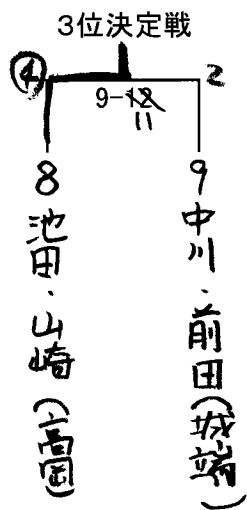 3位決定戦
④ 2
9-12
11
8 池田・山崎(高岡)
9 中川・前田(城端)